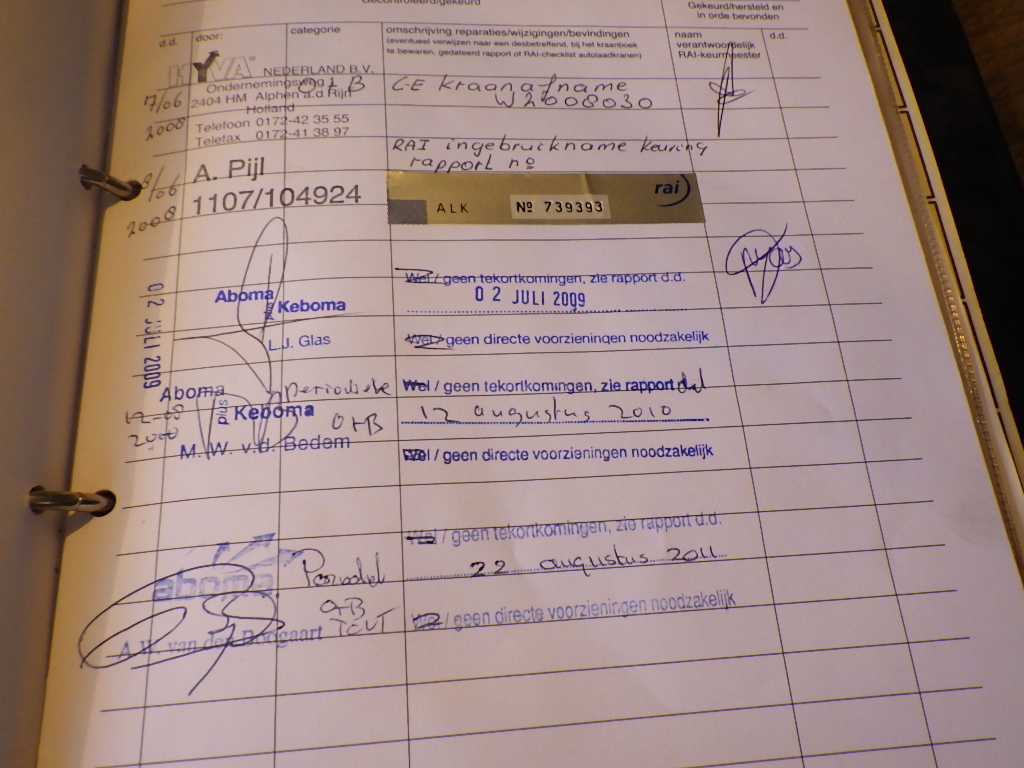 Gecontroleerd/gekeurd
Gekeurd/hersteld en
in orde bevonden
d.d.
door:
categorie
omschrijving reparaties/wijzigingen/bevindingen
(eventueel verwijzen naar een desbetreffend, bij het kraanboek
te bewaren, gedateerd rapport of RAI-checklist autolaadkranen)
naam
verantwoordelijk
RAI-keurmeester
d.d.
17/06
2008
HYVA NEDERLAND B.V.
Ondernemingsweg
2404 HM Alphen a.d Rijn
Holland
Telefoon 0172-42 35 55
Telefax 0172-41 38 97
CE kraanafname
W2008030
/06
2008
A. Pijl
1107/104924
RAI ingebruikname keuring
rapport no
ALK No 739393 rai
02 JULI 2009
Aboma
plus Keboma
L.J. Glas
Wel / geen tekortkomingen, zie rapport d.d.
02 JULI 2009
Wel / geen directe voorzieningen noodzakelijk
Aboma
plus Keboma
M. W. v.d. Bedem
periodieke
Wel / geen tekortkomingen, zie rapport dd
12 augustus 2010
Wel / geen directe voorzieningen noodzakelijk
aboma
A.W. van den Boogaart
Wel / geen tekortkomingen, zie rapport d.d.
22 augustus 2011
Wel / geen directe voorzieningen noodzakelijk